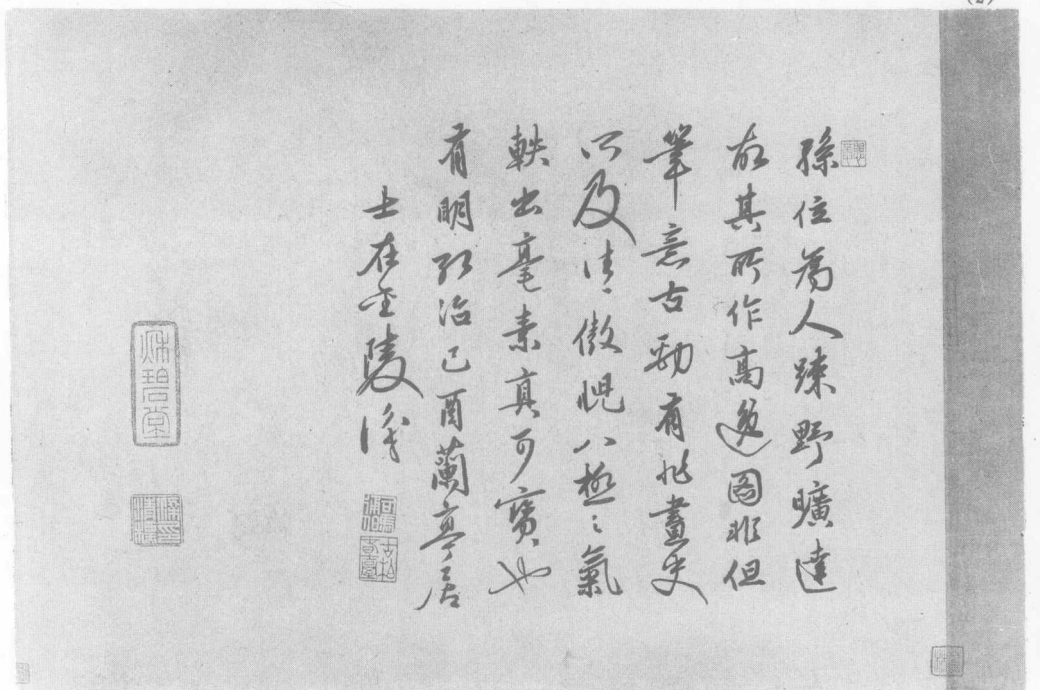 (2)
孫位為人踈野曠達
故其所作高逸圖非但
筆意古勁有非畫史
所及清傲睨八極之氣
軼出毫素真可寶也
有明弘治己酉蘭亭居
士在金陵識
秋碧堂